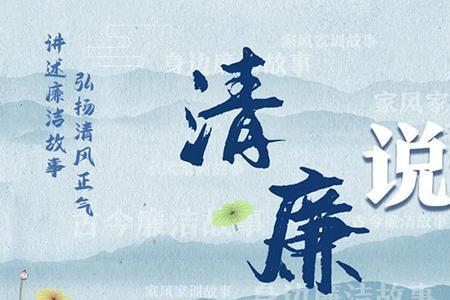 讲述廉洁故事
弘扬清风正气
清廉
说
家风家训故事
身边廉洁故事
家风家训
古今廉洁故事
古今廉洁
家风家训故事
身边廉洁